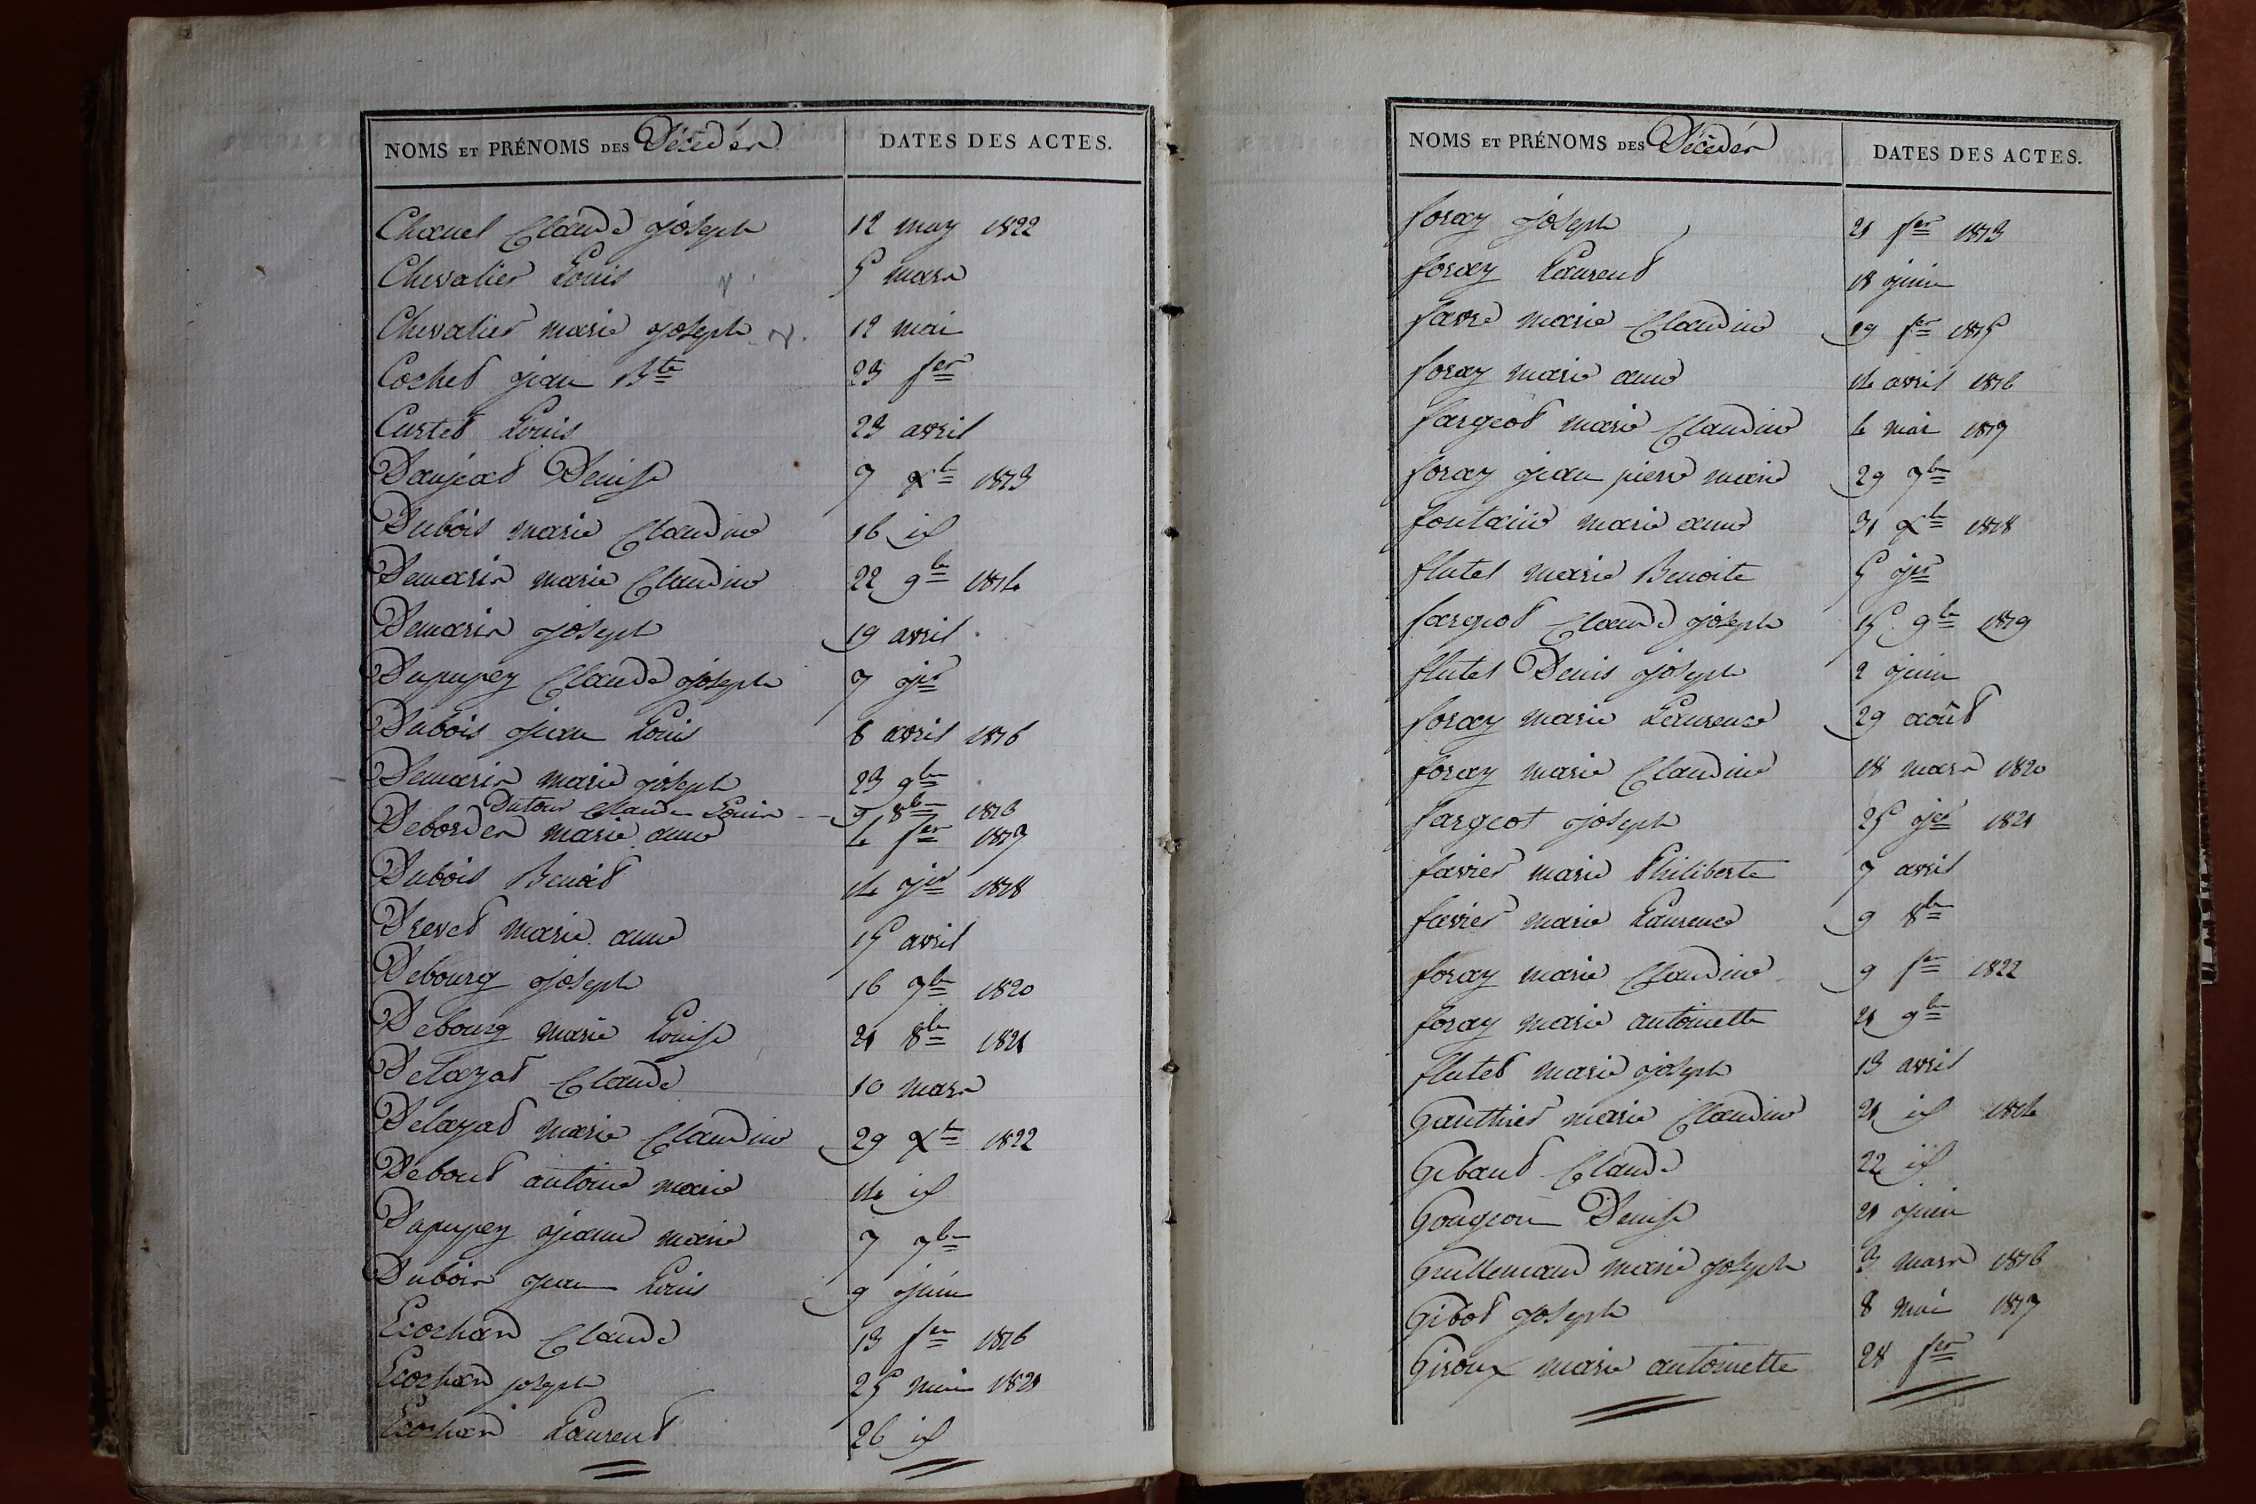 NOMS ET PRÉNOMS DES Décédés DATES DES ACTES.
Chanel Claude joseph 12 may 1822
Chevalier Louis 5 mars
Chevalier marie joseph 12 mai
Cochet jean Bte 23 fer
Curtet Louis 23 avril
Danjeat Denise 7 Xbre 1813
Dubois marie Claudine 16 id
Demaris marie Claudine 22 9bre 1814
Demaris joseph 19 avril
Dupupey Claude joseph 7 jer
Dubois jean Louis 8 avril 1816
Demaris marie joseph 23 9bre
Dutour Claude Louis 9 8bre 1816
Debordes marie anne 4 fer 1817
Dubois Benoit 14 jer 1818
Drevet marie anne 15 avril
Debourg joseph 16 7bre 1820
Debourg marie Louise 21 8bre 1821
Delayat Claude 10 mars
Delayat marie Claudine 29 Xbre 1822
Debout antoine marie 14 id
Dupupey jeanne marie 7 7bre
Dubois jean Louis 9 juin
Ecochard Claude 13 fer 1816
Ecochard joseph 25 mai 1821
Ecochard Laurent 26 id
NOMS ET PRÉNOMS DES Décédés DATES DES ACTES.
foray joseph 21 fer 1813
foray Laurent 18 juin
favre marie Claudine 19 fer 1815
foray marie anne 14 avril 1816
fargeot marie Claudine 4 mai 1817
foray jean pierre marie 29 7bre
fontaine marie anne 31 Xbre 1818
flutet marie Benoite 5 jer
fargeot Claude joseph 15 9bre 1819
flutet Denis joseph 2 juin
foray marie Laurence 29 août
foray marie Claudine 18 mars 1820
fargeot joseph 25 jer 1821
favier marie Philiberte 7 avril
favier marie Laurence 9 8bre
foray marie Claudine 9 fer 1822
foray marie antoinette 21 9bre
flutet marie joseph 13 avril
Gauthier marie Claudine 21 id 1814
Gibaud Claude 22 id
Gougeon Denise 21 juin
Guillemaud marie joseph 3 mars 1816
Gibot joseph 8 mai 1817
Giroux marie antoinette 28 fer